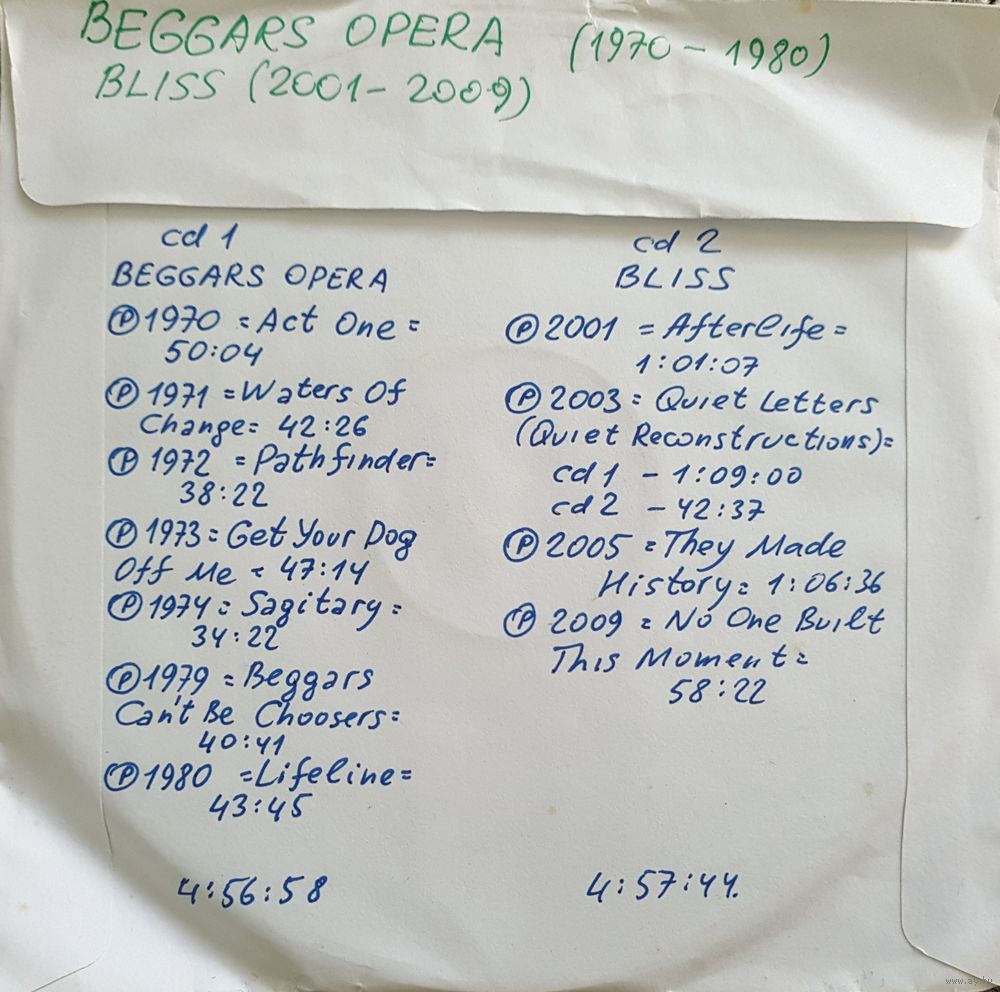 BEGGARS OPERA (1970 - 1980)
BLISS (2001 - 2009)
cd 1
BEGGARS OPERA
Ⓟ 1970 = Act One =
50:04
Ⓟ 1971 = Waters Of
Change = 42:26
Ⓟ 1972 = Pathfinder =
38:22
Ⓟ 1973 = Get Your Dog
Off Me = 47:14
Ⓟ 1974 = Sagitary =
34:22
Ⓟ 1979 = Beggars
Can't Be Choosers =
40:41
Ⓟ 1980 = Lifeline =
43:45
4:56:58
cd 2
BLISS
Ⓟ 2001 = Afterlife =
1:01:07
Ⓟ 2003 = Quiet Letters
(Quiet Reconstructions) =
cd 1 - 1:09:00
cd 2 - 42:37
Ⓟ 2005 = They Made
History = 1:06:36
Ⓟ 2009 = No One Built
This Moment =
58:22
4:57:44.